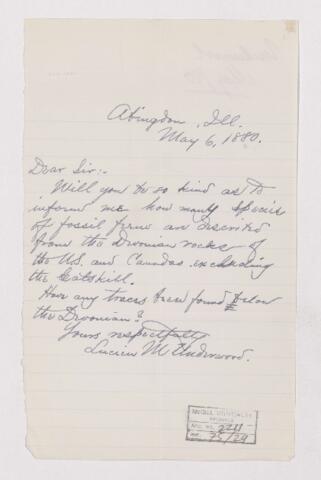 Underwood
Abingdon, Ill.
May 6, 1880.
Dear Sir:-
Will you be so kind as to
inform me how many species
of fossil ferns are described
from the Devonian rocks of
the U.S. and Canadas excluding
the Catskill.
Have any traces been found below
the Devonian?
Yours respectfully
Lucien M Underwood.
McGILL UNIVERSITY
ARCHIVES
ACC. NO. 2211
REF. 35/24